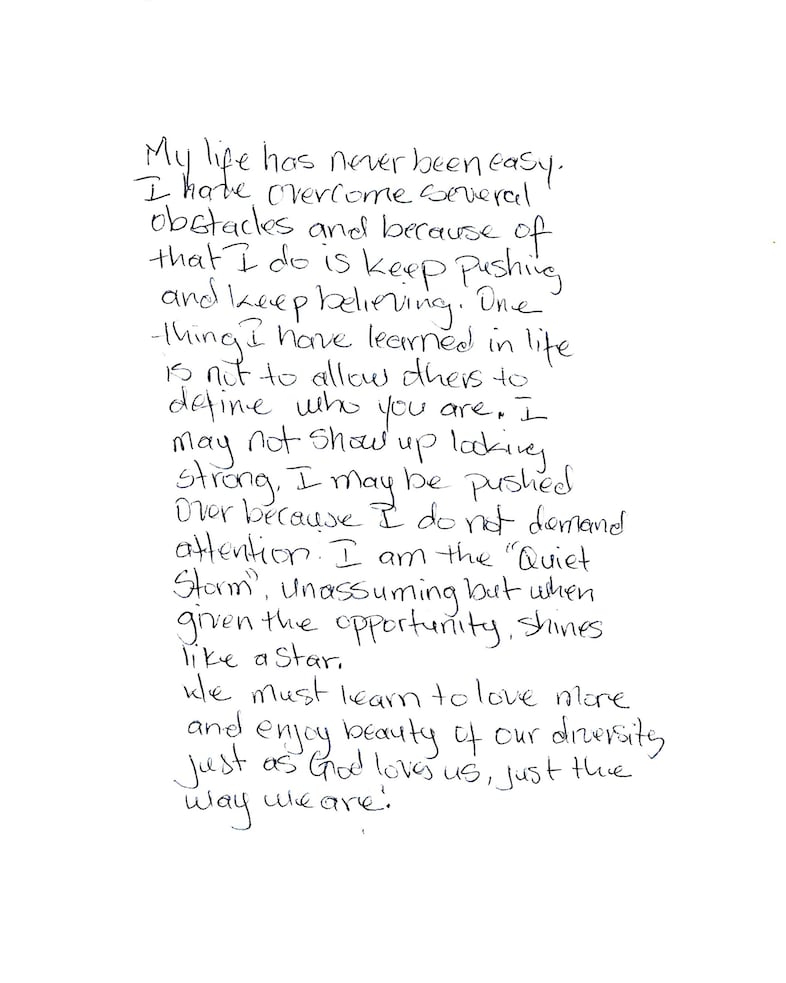 My life has never been easy.
I have overcome several
obstacles and because of
that I do is keep pushing
and keep believing. One
thing I have learned in life
is not to allow others to
define who you are. I
may not show up looking
strong, I may be pushed
over because I do not demand
attention. I am the "Quiet
Storm", unassuming but when
given the opportunity, shines
like a star.
We must learn to love more
and enjoy beauty of our diversity
just as God loves us, just the
way we are!